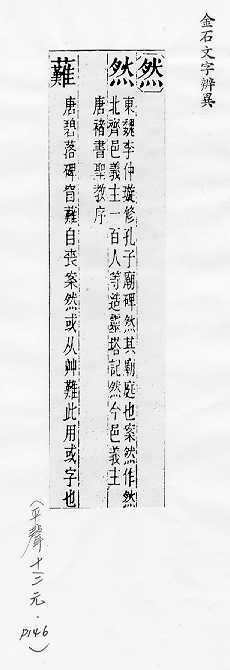 金石文字辨異
然
東魏李仲璇修孔子廟碑然其廟庭也案然作然
然
北齊邑義主一百人等造靈塔記然今邑義主
唐褚書聖教序
蘸
唐碧落碑窅蘸自喪案然或从艸難此用或字也
(平聲十三元.P146)